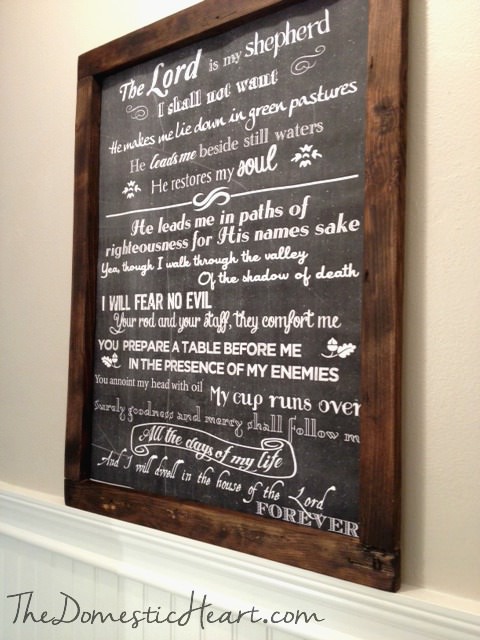 The Lord is my shepherd
I shall not want
He makes me lie down in green pastures
He leads me beside still waters
He restores my soul
He leads me in paths of
righteousness for His names sake
Yea, though I walk through the valley
Of the shadow of death
I WILL FEAR NO EVIL
Your rod and your staff, they comfort me
YOU PREPARE A TABLE BEFORE ME
IN THE PRESENCE OF MY ENEMIES
You annoint my head with oil
My cup runs over
Surely goodness and mercy shall follow m
All the days of my life
And I will dwell in the house of the Lord
FOREVER
TheDomesticHeart.com